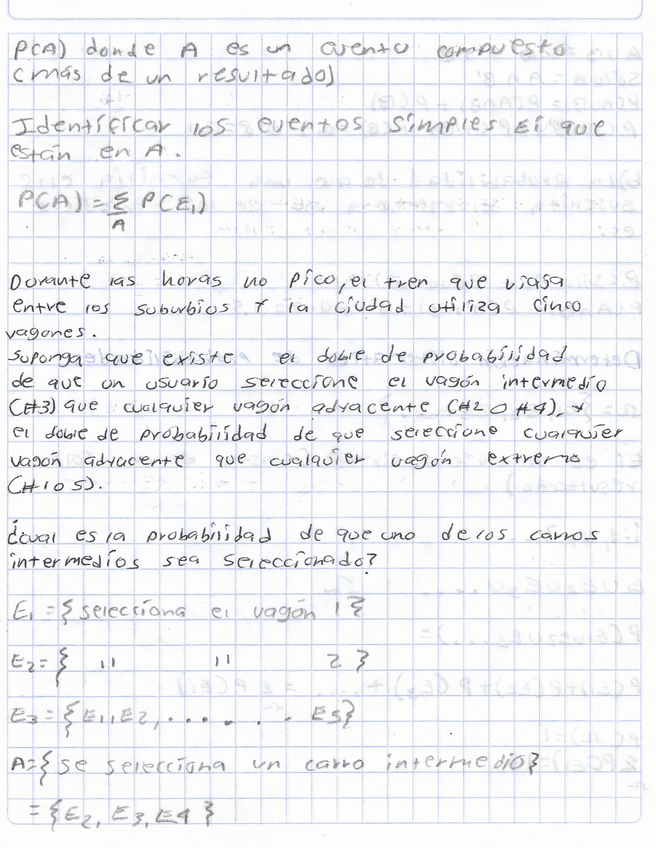 P(A) donde A es un evento compuesto
(más de un resultado)
Identificar los eventos simples Ei que
están en A.
P(A) = Σ P(E1)
A
Durante las horas no pico, el tren que viasa
entre los suburbios y la ciudad utiliza cinco
vagones.
suponga que existe el doble de probabilidad
de que un usuario seleccione el vagón intermedio
(#3) que cualquier vagón adyacente (#2 o #4), y
el doble de probabilidad de que seleccione cualquier
vagón adyacente que cualquier vagón extremo
(#1 o 5).
¿cual es la probabilidad de que uno de los carros
intermedios sea seleccionado?
E1 = {selecciona el vagón 1}
E2 = { " " 2 }
E3 = {E1, E2, ....... E5}
A = {se selecciona un carro intermedio}
= {E2, E3, E4}